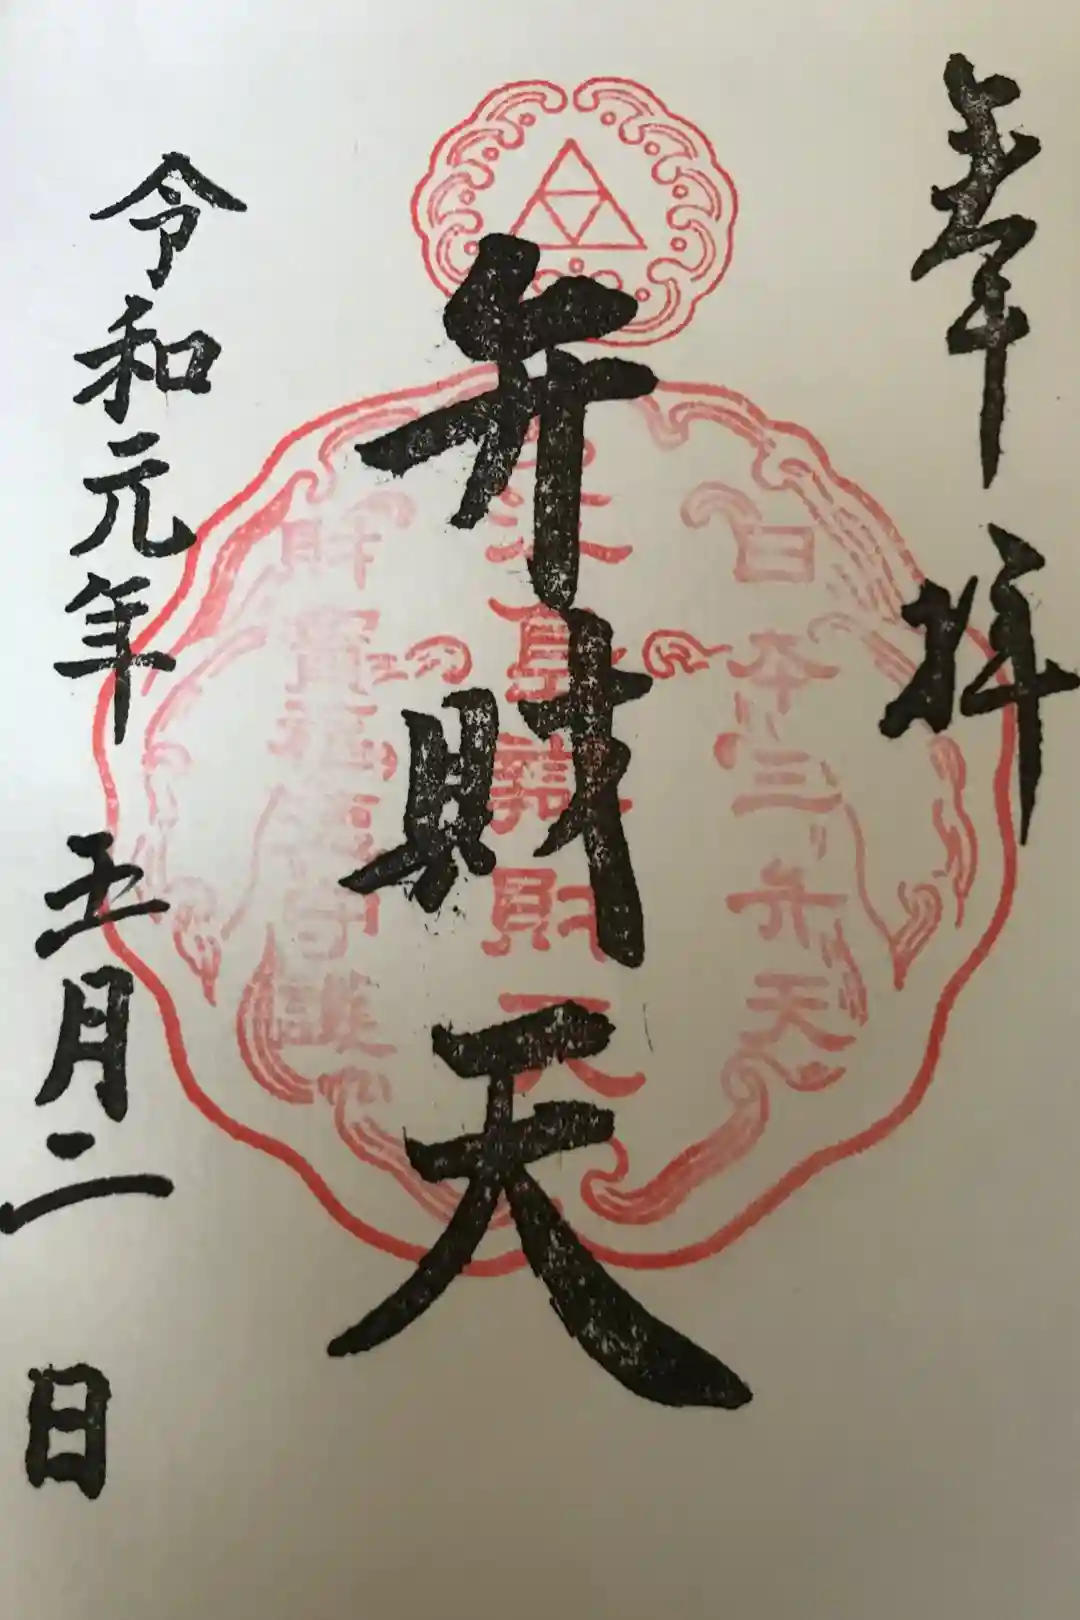 奉拝
日本三弁天
弁財天
江島辨財天
財寶福徳守護
令和元年 五月二日